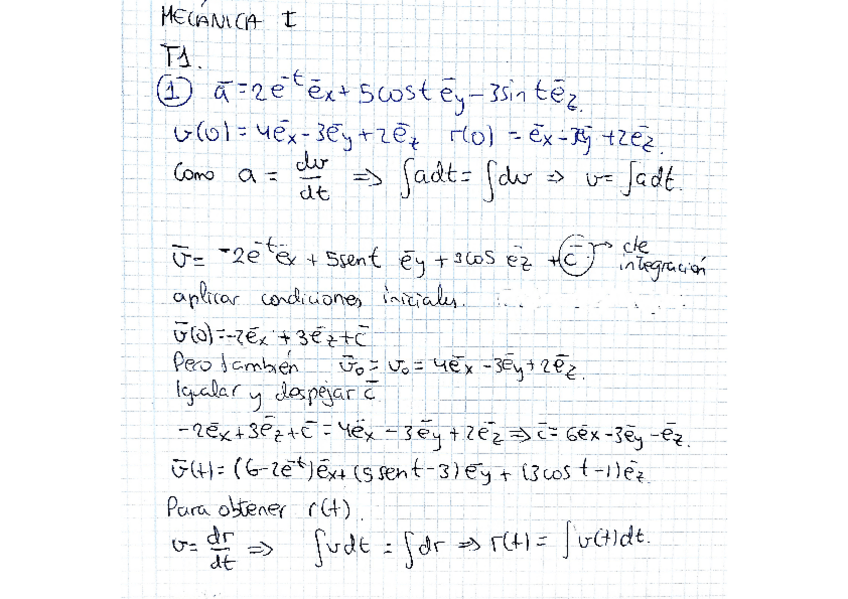 MECÁNICA I
T1.
① ā = 2e⁻ᵗ ēx + 5cost ēy - 3sin t ēz.
v(0) = 4ēx - 3ēy + 2ēz r(0) = ēx - 3ēy + 2ēz.
Como a = dv/dt ⇒ ∫adt = ∫dv ⇒ v = ∫adt.
v̄ = -2e⁻ᵗēx + 5sent ēy + 3cos ēz + c̄ → cte integración
aplicar condiciones iniciales.
v̄(0) = -2ēx + 3ēz + c̄
Pero también v̄₀ = v₀ = 4ēx - 3ēy + 2ēz.
Igualar y despejar c̄
-2ēx + 3ēz + c̄ = 4ēx - 3ēy + 2ēz ⇒ c̄ = 6ēx - 3ēy - ēz.
v̄(t) = (6-2e⁻ᵗ)ēx + (5sent-3)ēy + (3cost-1)ēz
Para obtener r(t).
v = dr/dt ⇒ ∫vdt = ∫dr ⇒ r(t) = ∫v(t)dt.